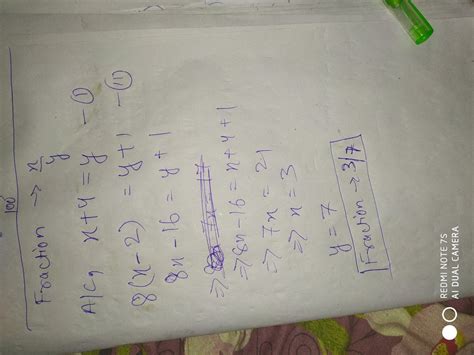 100
Fraction → x/y
A/Cq x+4 = y — (i)
8(x-2) = y+1 — (ii)
8x-16 = y+1
⇒ 8x-16 = x+4+1
⇒ 7x = 21
⇒ x = 3
y = 7
Fraction → 3/7
REDMI NOTE 7S
AI DUAL CAMERA